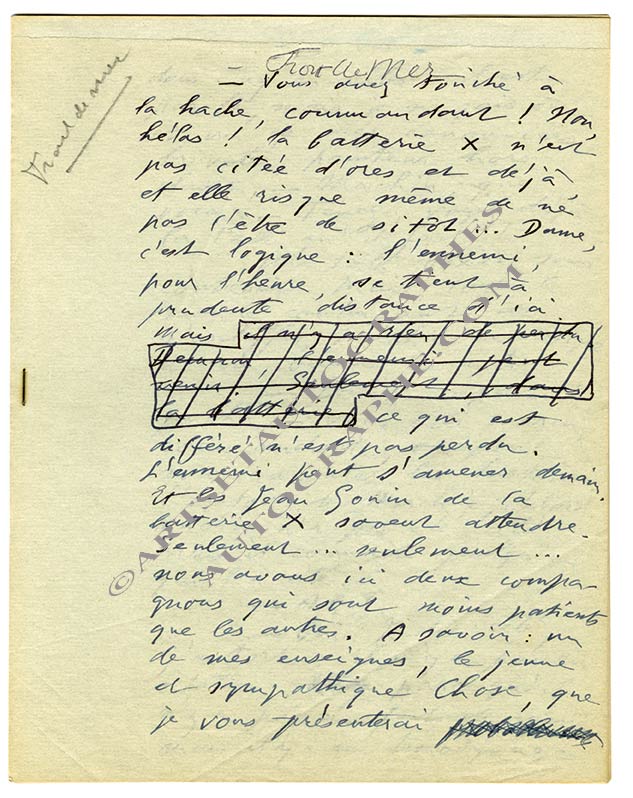 Front de Mer
Front de mer
— Vous avez touché à
la hache, commandant ! Non,
hélas ! la batterie X n'est
pas citée d'ores et déjà,
et elle risque même de ne
pas l'être de sitôt... Dame,
c'est logique : l'ennemi,
pour l'heure, se tient à
prudente distance d'ici
mais il n'y a rien de perdu
l'ennemi peut
venir. Seulement, dans
la batterie, ce qui est
différé n'est pas perdu.
L'ennemi peut s'amener demain.
Et les Jean Gouin de la
batterie X savent attendre.
Seulement... seulement...
nous avons ici deux compa-
gnons qui sont moins patients
que les autres. A savoir : un
de mes enseignes, le jeune
et sympathique Chose, que
je vous présenterai
©ARTSETAUTOGRAPHES
AUTOGRAPHE.COM